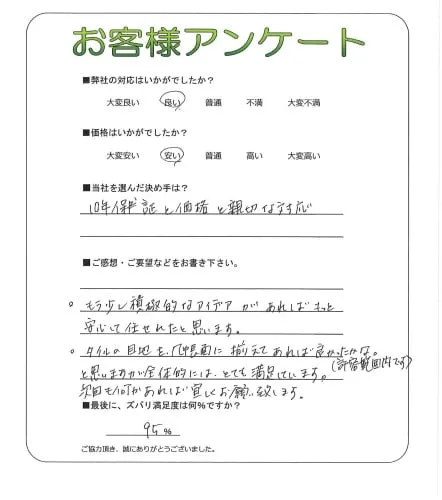 お客様アンケート
■弊社の対応はいかがでしたか？
大変良い 良い 普通 不満 大変不満
■価格はいかがでしたか？
大変安い 安い 普通 高い 大変高い
■当社を選んだ決め手は？
10年保証と価格と親切な対応
■ご感想・ご要望などをお書き下さい。
○ もう少し積極的なアイデアがあればもっと
安心して任せれたと思います。
○ タイルの目地を、に揃えてあれば良かったかな。
(許容範囲内です)
と思いますが全体的には、とても満足しています。
次回も何かあれば宜しくお願い致します。
■最後に、ズバリ満足度は何％ですか？
95 %
ご協力頂き、誠にありがとうございました。